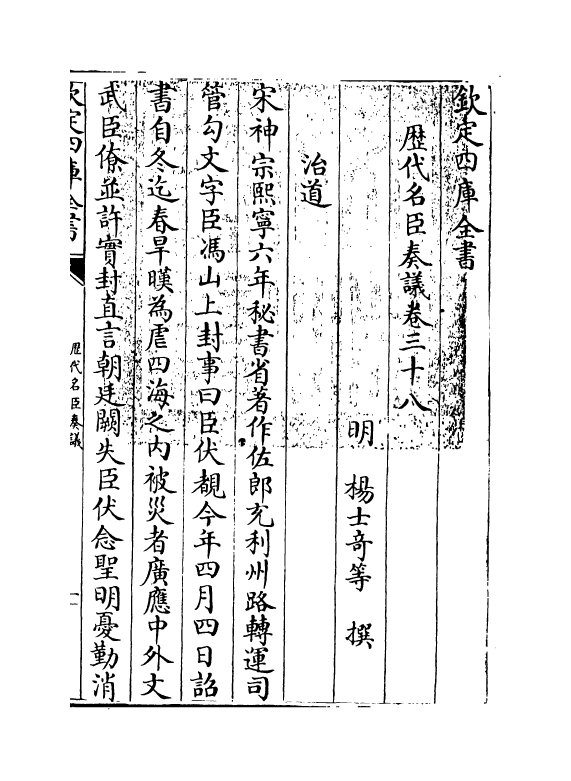 欽定四庫全書
歴代名臣奏議卷三十八
明 楊士奇等 撰
治道
宋神宗熙寧六年秘書省著作佐郎充利州路轉運司
管勾文字臣馮山上封事曰臣伏覩今年四月四日詔
書自冬迄春旱暵為虐四海之内被災者廣應中外文
武臣僚並許實封直言朝廷闕失臣伏念聖明憂勤消
欽定四庫全書
歴代名臣奏議
一